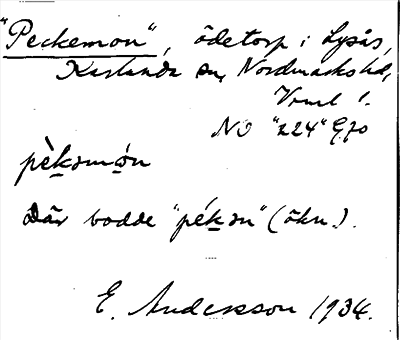 "Peckemon", ödetorp i Lysås,
Karlanda sn, Nordmarks hd,
Vrml.
NO "224" G70
pèkǝmón
Där bodde "pékǝn" (ökn.).
E. Andersson 1934.